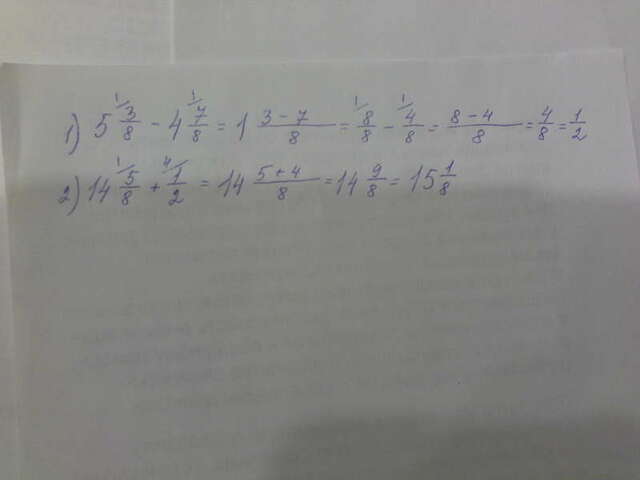 1) 5 ¹/3/8 - 4 ¹/7/8 = 1 (3 - 7)/8 = ¹/8/8 - ¹/4/8 = (8 - 4)/8 = 4/8 = 1/2
2) 14 ¹/5/8 + ⁴/1/2 = 14 (5 + 4)/8 = 14 9/8 = 15 1/8